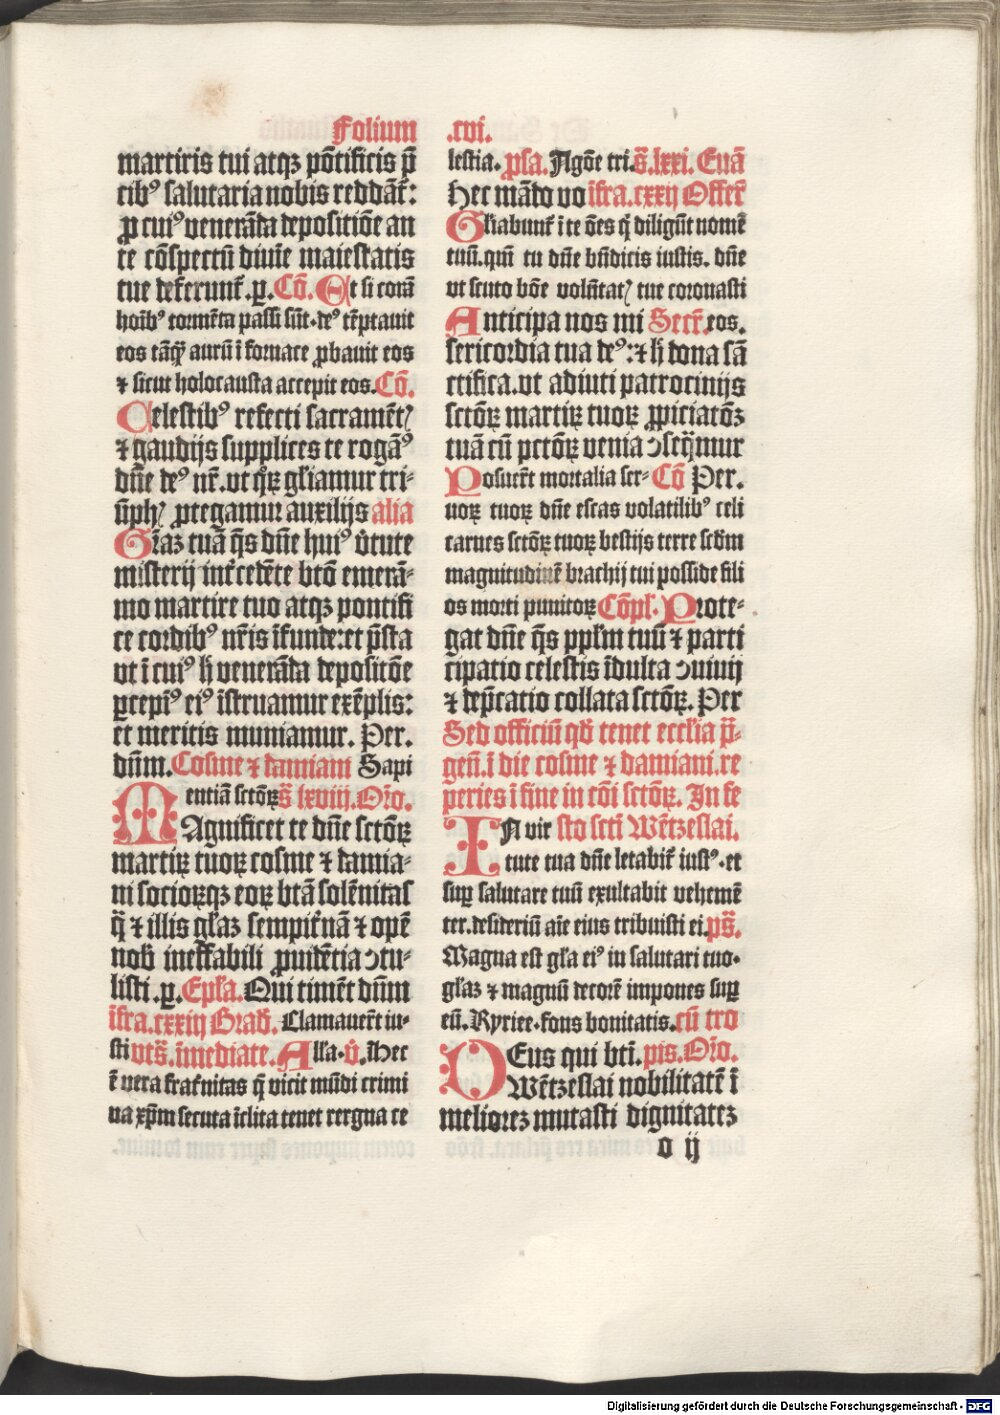 Folium .cvi.
martiris tui atqꝫ põtificis p̄
cibꝰ salutaria nobis reddãt᷑:
ꝓ cuiꝰ venerãda depositiõe an
te cõspectũ diuĩe maiestatis
tue deferunt᷑.ꝑ. Cõ. Et si corã
hoĩbꝰ tormẽta passi sũt. deꝰ tẽptauit
eos tãq̃ȝ aurũ ĩ fornace ꝓbauit eos
⁊ sicut holocausta accepit eos. Cõ.
Celestibꝰ refecti sacramẽtꝭ
⁊ gaudijs supplices te rogãꝰ
dñe deꝰ nr̃. vt qꝝ gl̃iamur tri-
ũphꝭ ꝓtegamur auxilijs alia
Gr̃aꝫ tuã q̃s dñe huiꝰ v̓tute
misterij int᷑cedẽte btõ emerã-
mo martire tuo atqꝫ pontifi
ce cordibꝰ nr̃is ĩfunde: et p̄sta
vt ĩ cuiꝰ ħ venerãda depositõe
ꝑcepiꝰ eiꝰ ĩstruamur exẽplis:
et meritis muniamur. Per.
dñm. Cosme ⁊ damiani Sapi
entiã sctõꝝ s̃ lxviii. Or̃o.
MAgnificet te dñe sctõꝝ
martiꝝ tuoꝝ cosme ⁊ damia-
ni socioꝝqꝫ eoꝝ btã solẽnitas
q̃ ⁊ illis gl̃aꝫ sempit᷑nã ⁊ opẽ
nob̃ ineffabili ꝓuidẽtia ↄtu-
listi .ꝑ. Epl̃a. Qui timẽt dñm
ĩfra. cxxiij Grad̃. Clamauer̃t iu-
sti vts̃. ĩmediate. All̃a. v̓. Hec
ẽ vera frat᷑nitas q̃ vicit mũdi crimi
na xp̃m secuta ĩclita tenet rergna ce
lestia. ꝓsa. Agõe tri. s̃. lxxi. Euã
Hec mãdo vo ĩfra. cxxij Offer̃
Gl̃iabunt᷑ ĩ te ões q̃ diligũt nomẽ
tuũ. qm̃ tu dñe bñdicis iustis. dñe
vt scuto bõe volũtatꝭ tue coronasti
Anticipa nos mi Secr̃. eos.
sericordia tua deꝰ: ⁊ ħ dona sã
ctifica. vt adiuti patrocinijs
sctõꝝ martiꝝ tuoꝝ ꝓpiciatõꝫ
tuã cũ pctõꝝ venia ↄseq̃mur
Posuer̃t mortalia ser- Cõ Per.
uoꝝ tuoꝝ dñe escas volatilibꝰ celi
carnes sctõꝝ tuoꝝ bestijs terre scd̃m
magnitudinẽ brachij tui posside fili
os morti punitoꝝ Cõpl̃. Prote-
gat dñe q̃s ppl̃m tuũ ⁊ parti
cipatio celestis ĩdulta ↄuiuij
⁊ dep̃catio collata sctõꝝ. Per
Sed officiũ qd̃ tenet eccl̃ia p̃-
gen̄. ĩ die cosme ⁊ damiani. re
peries ĩ fine in cõi sctõꝝ. In fe
IN vir sto scti Wẽtzeslai.
tute tua dñe letabit᷑ iustꝰ. et
suꝑ salutare tuũ exultabit vehemẽ
ter. desideriũ aĩe eius tribuisti ei. ps̃.
Magna est gl̃a eiꝰ in salutari tuo.
gl̃aꝫ ⁊ magnũ decorẽ impones suꝑ
eũ. Kyriee. fons bonitatis. cũ tro
DEus qui bti. pis. Or̃o.
Wẽtzeslai nobilitatẽ ĩ
melioreꝫ mutasti dignitateꝫ
o ij
Digitalisierung gefördert durch die Deutsche Forschungsgemeinschaft - DFG